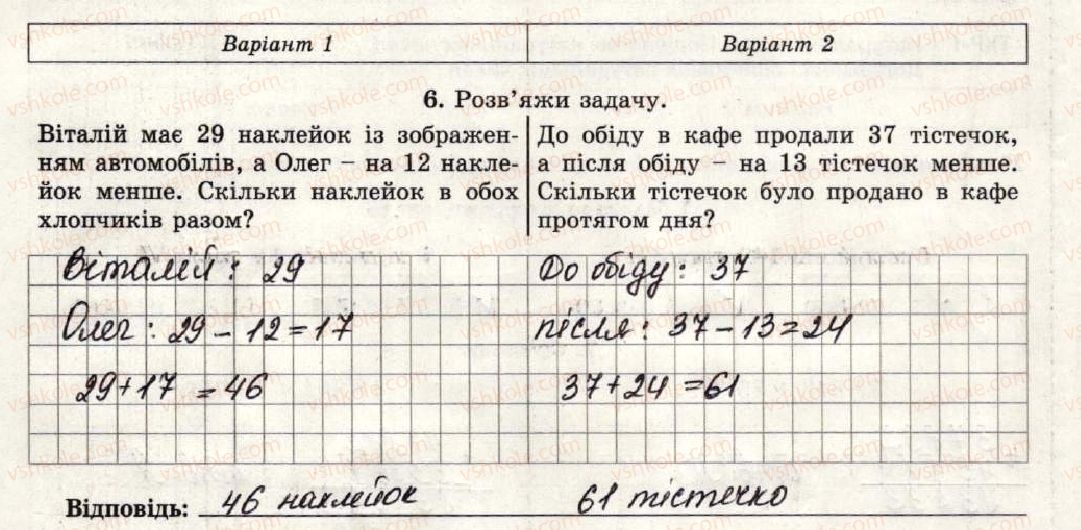 Варіант 1
Варіант 2
6. Розв'яжи задачу.
Віталій має 29 наклейок із зображен-
ням автомобілів, а Олег – на 12 накле-
йок менше. Скільки наклейок в обох
хлопчиків разом?
До обіду в кафе продали 37 тістечок,
а після обіду – на 13 тістечок менше.
Скільки тістечок було продано в кафе
протягом дня?
Віталій: 29
Олег: 29 – 12 = 17
29 + 17 = 46
До обіду: 37
після: 37 – 13 = 24
37 + 24 = 61
Відповідь: 46 наклейок 61 тістечко